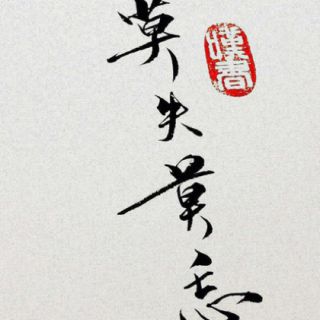 莫失莫忘